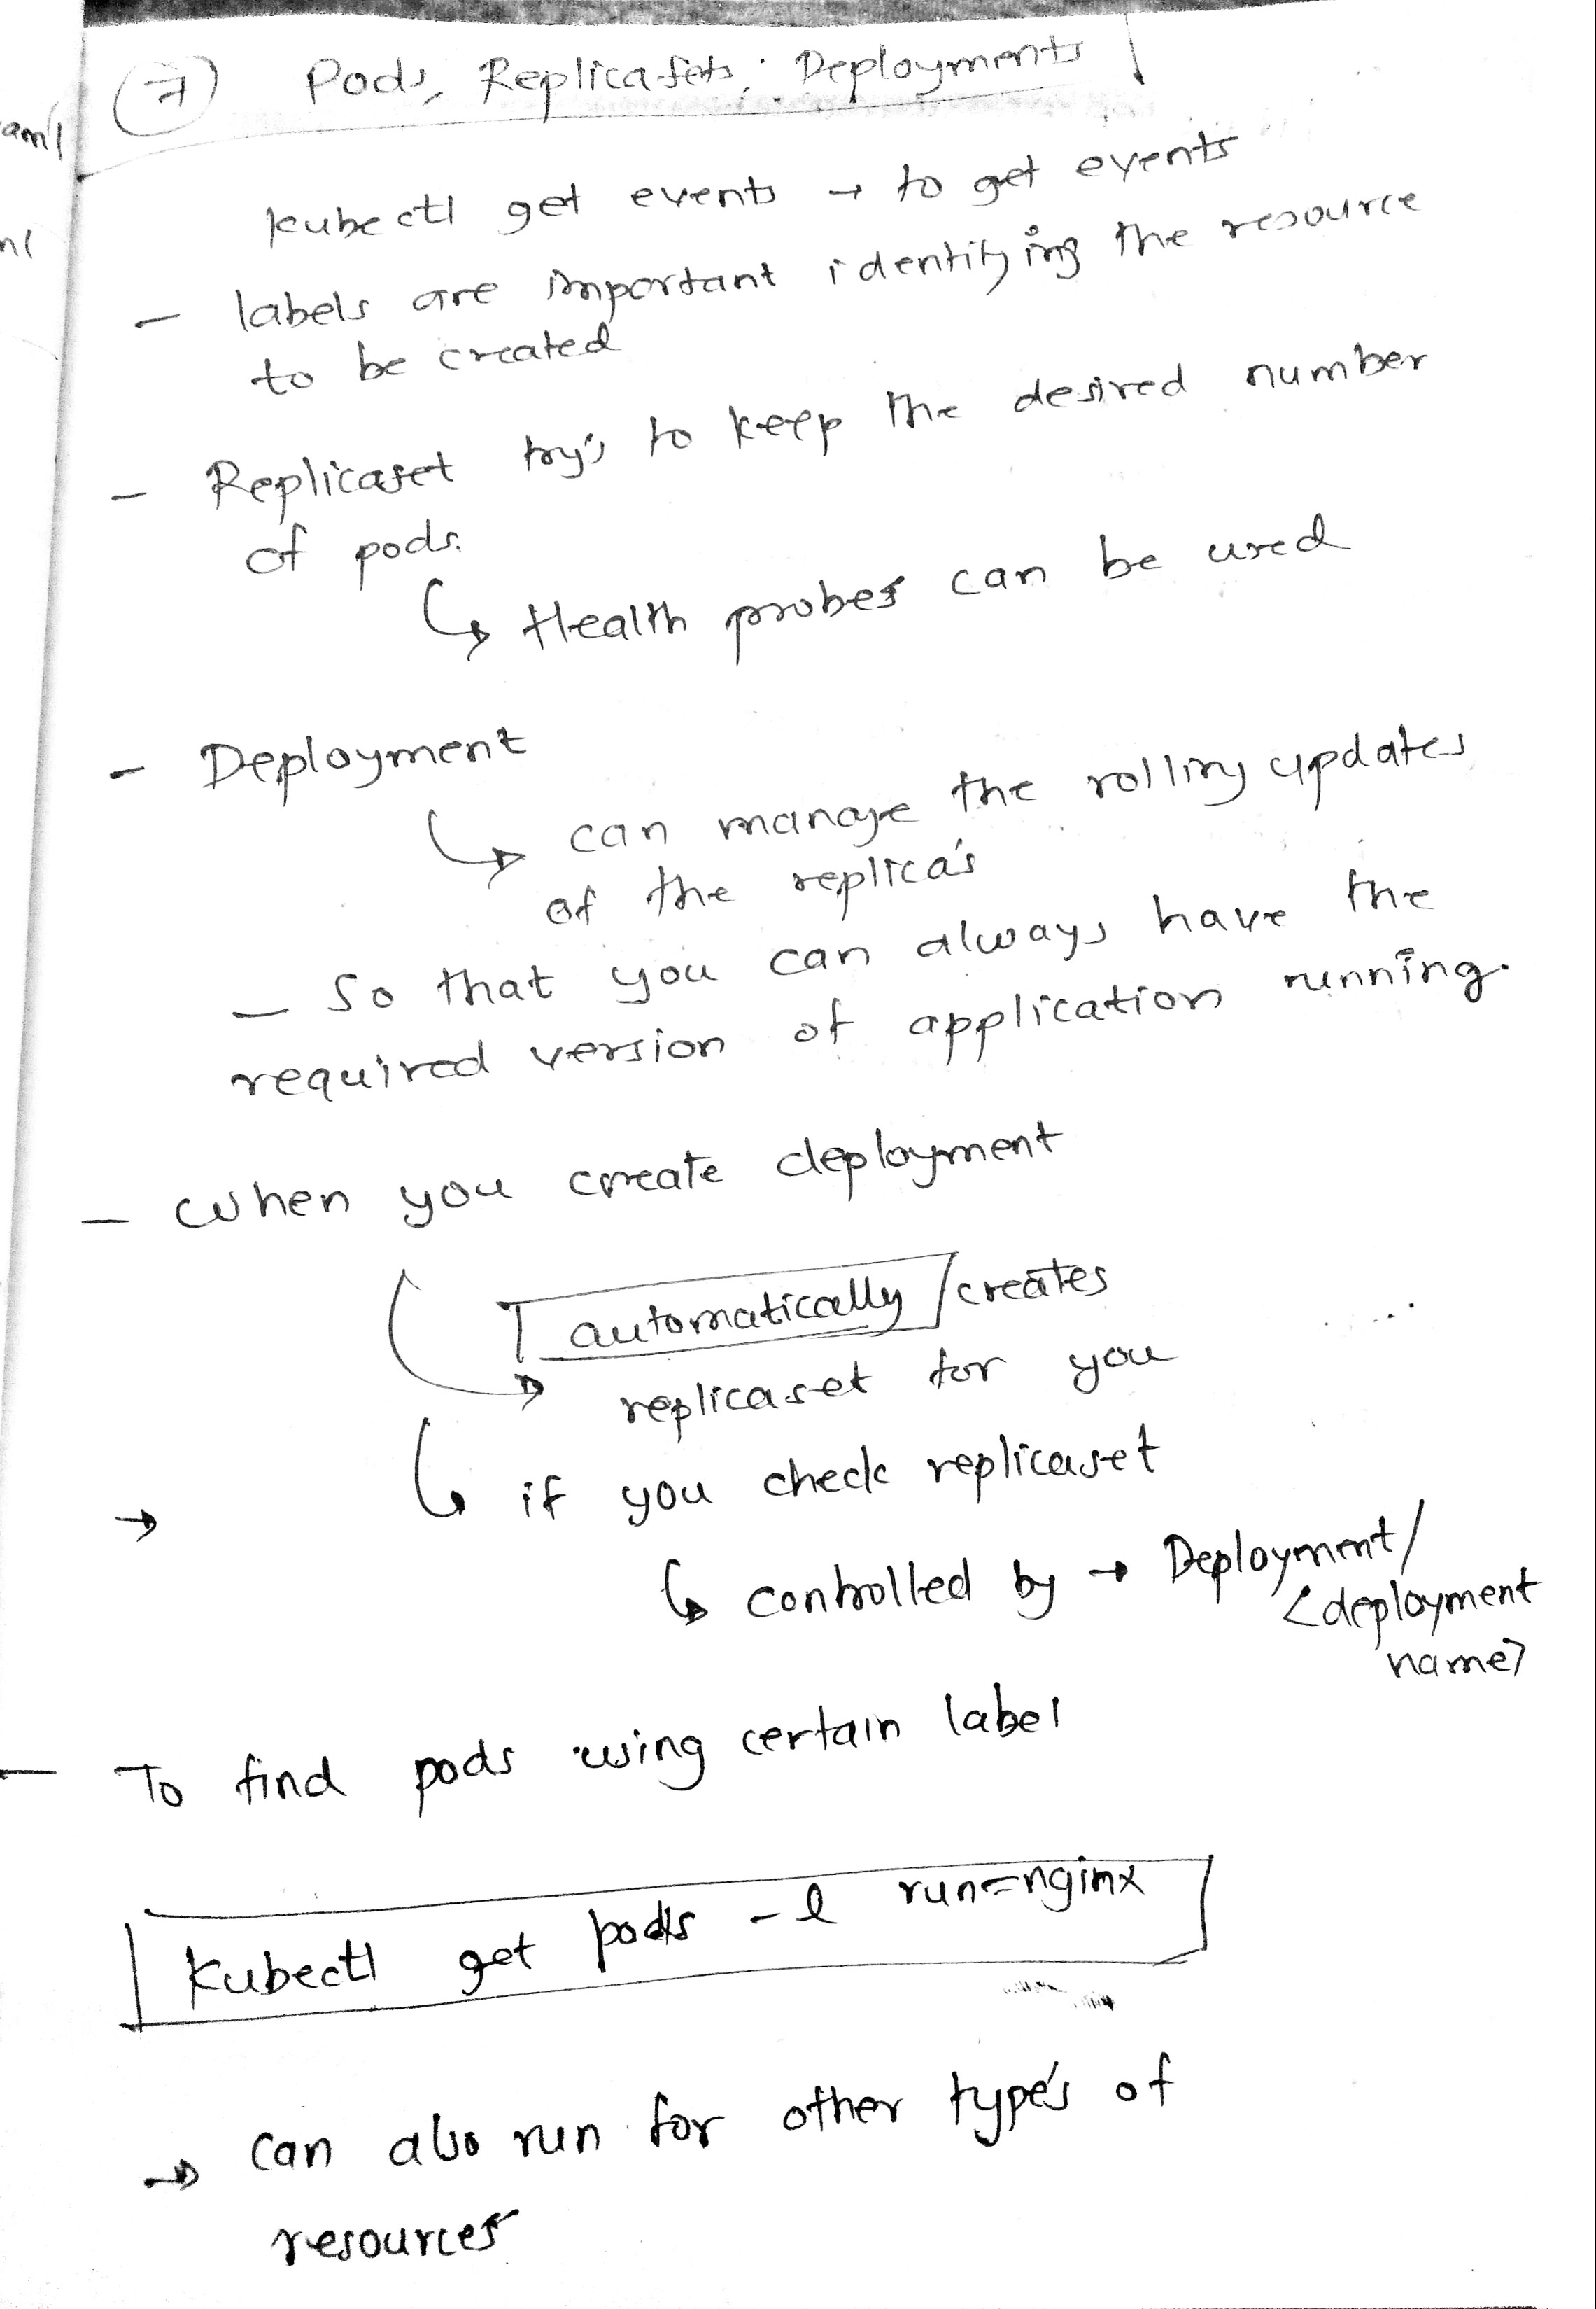 7 Pods, Replicasets, Deployments
kubectl get events → to get events
- labels are important identifying the resource
to be created
- Replicaset try's to keep the desired number
of pods.
↳ Health probes can be used
- Deployment
↳ can manage the rolling updates
of the replica's
- So that you can always have the
required version of application running.
- when you create deployment
automatically creates
→ replicaset for you
↳ if you check replicaset
→
↳ controlled by → Deployment/
<deployment
name>
- To find pods using certain label
kubectl get pods -l run=nginx
→ can also run for other type's of
resources